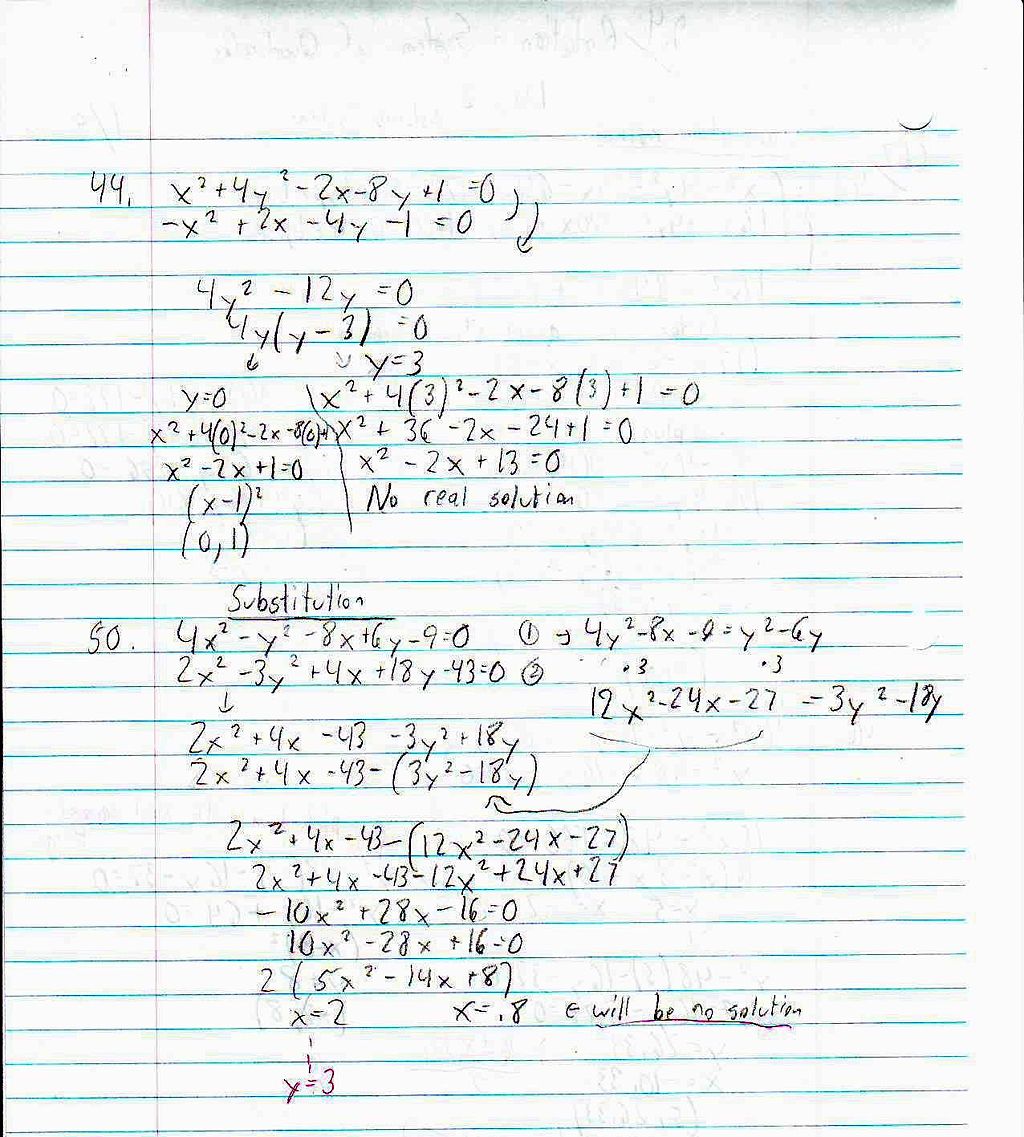 44. x² + 4y² - 2x - 8y + 1 = 0
-x² + 2x - 4y - 1 = 0
4y² - 12y = 0
4y(y - 3) = 0
y = 3
y = 0
x² + 4(3)² - 2x - 8(3) + 1 = 0
x² + 4(0)² - 2x - 8(0) + 1
x² + 36 - 2x - 24 + 1 = 0
x² - 2x + 1 = 0
x² - 2x + 13 = 0
(x - 1)²
No real solution
(0, 1)
Substitution
50. 4x² - y² - 8x + 6y - 9 = 0 ① → 4y² - 8x - 9 = y² - 6y
2x² - 3y² + 4x + 18y - 43 = 0 ② ·3 ·3
12x² - 24x - 27 = 3y² - 18y
2x² + 4x - 43 - 3y² + 18y
2x² + 4x - 43 - (3y² - 18y)
2x² + 4x - 43 - (12x² - 24x - 27)
2x² + 4x - 43 - 12x² + 24x + 27
- 10x² + 28x - 16 = 0
10x² - 28x + 16 = 0
2 (5x² - 14x + 8)
x = 2 x = .8 ← will be no solution
y = 3